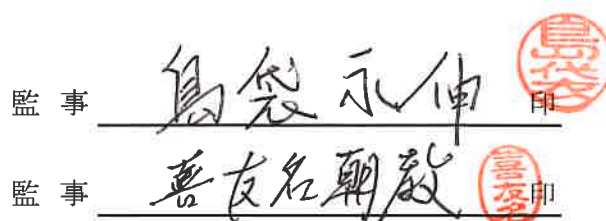 監事 島袋永伸 印
監事 喜友名朝敏 印
喜友名